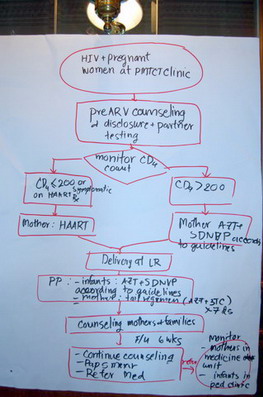 HIV + pregnant
women at PMTCT clinic
pre ARV counseling
& disclosure + partner
testing
monitor CD4
count
CD4 ≤200 or symptomatic
on HAART
CD4 >200
Mother: HAART
Mother AZT+
SDNVP according
to guidelines
Delivery at LR
PP: - infants: AZT + SDNVP
according to guidelines
- mother: tail regimen (AZT + 3TC)
x 7 days
counseling mothers + families
F/U 6 wks
- Continue counseling
- Refer Med
refer
Monitor
- mothers in
medicine
unit
- infants in
ped clinic